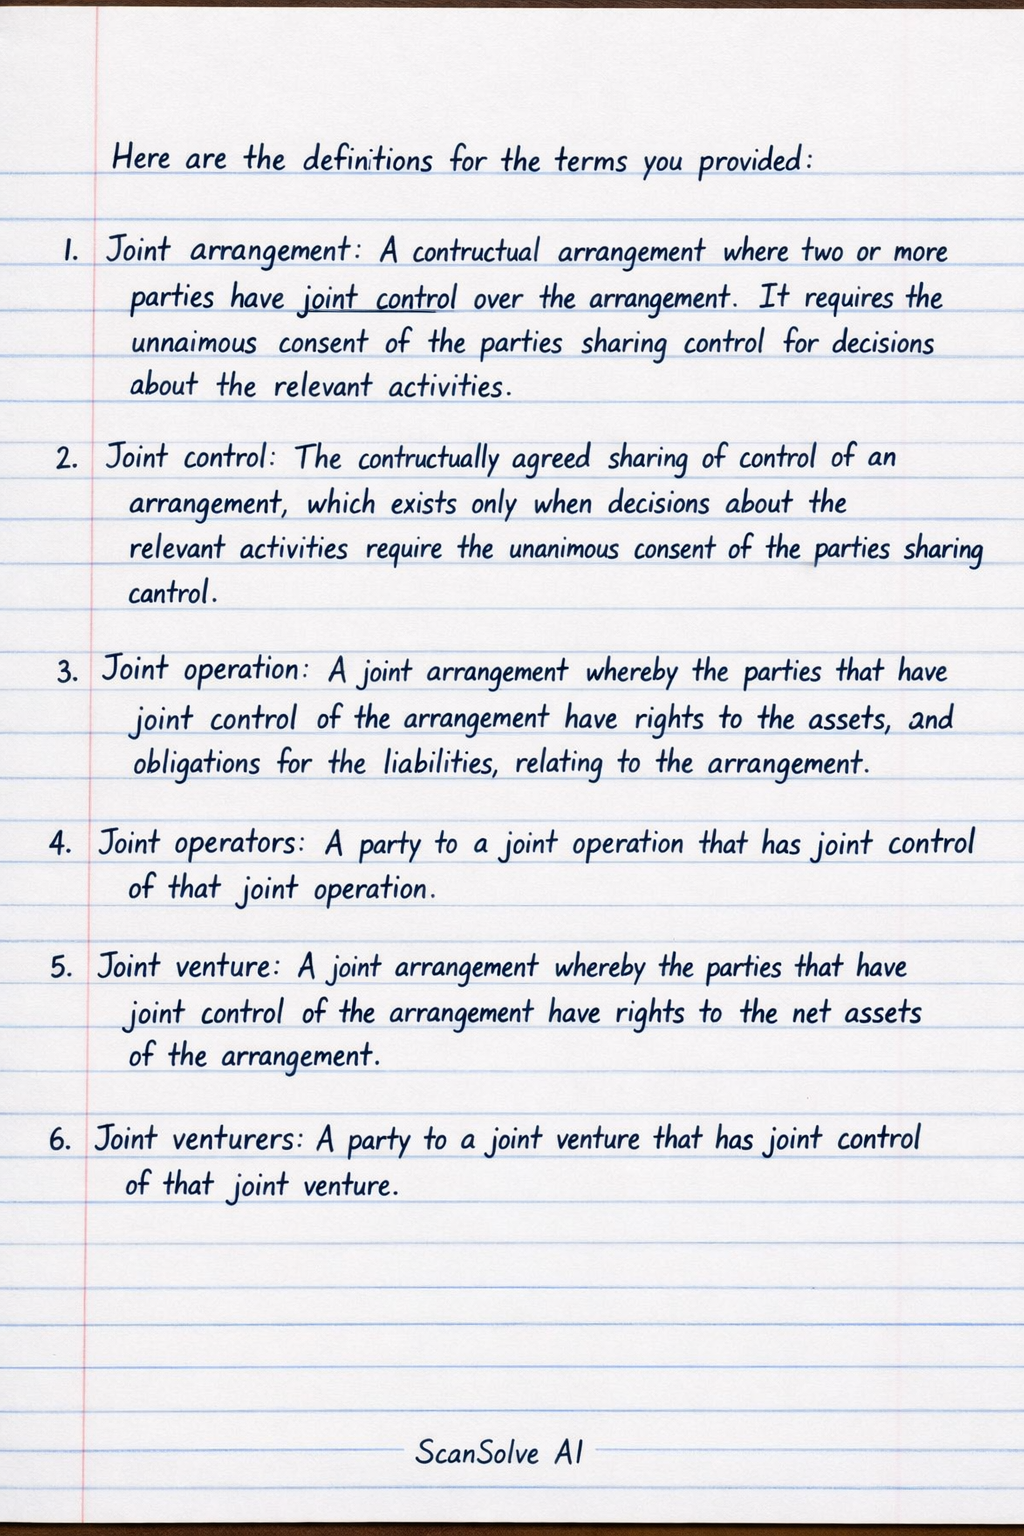 Here are the definitions for the terms you provided:
1. Joint arrangement: A contructual arrangement where two or more
parties have joint control over the arrangement. It requires the
unnaimous consent of the parties sharing control for decisions
about the relevant activities.
2. Joint control: The contructually agreed sharing of control of an
arrangement, which exists only when decisions about the
relevant activities require the unanimous consent of the parties sharing
cantrol.
3. Joint operation: A joint arrangement whereby the parties that have
joint control of the arrangement have rights to the assets, and
obligations for the liabilities, relating to the arrangement.
4. Joint operators: A party to a joint operation that has joint control
of that joint operation.
5. Joint venture: A joint arrangement whereby the parties that have
joint control of the arrangement have rights to the net assets
of the arrangement.
6. Joint venturers: A party to a joint venture that has joint control
of that joint venture.
ScanSolve AI